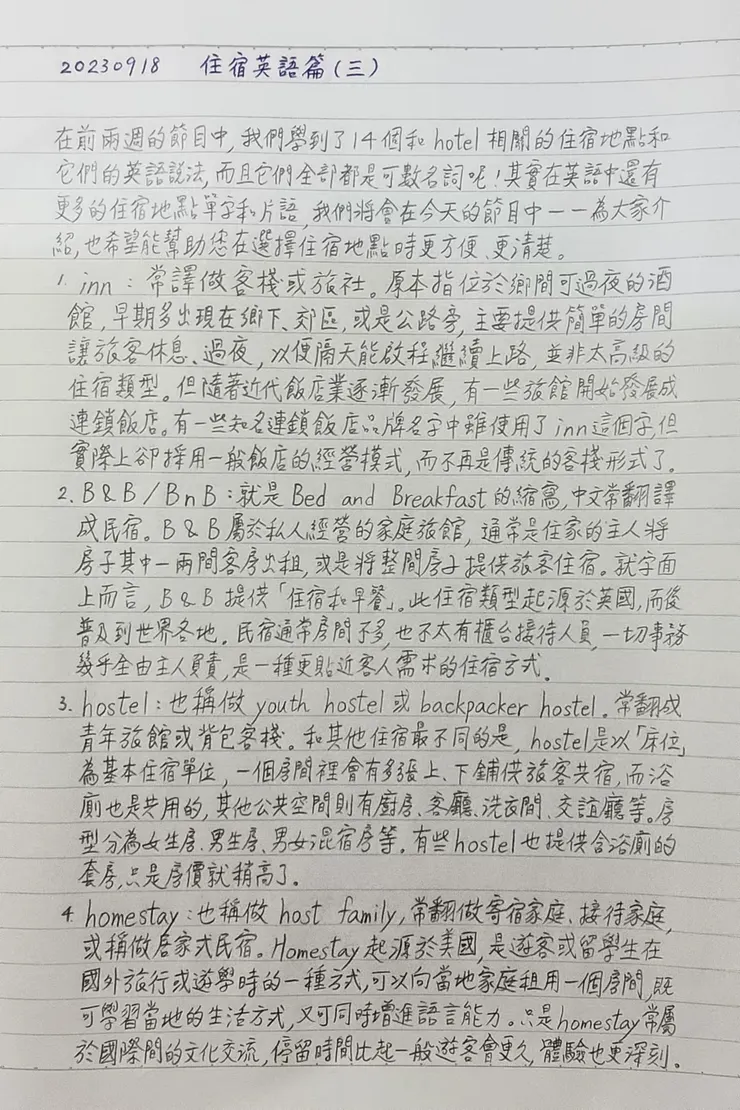 20230918 住宿英語篇(三)
在前兩週的節目中,我們學到了14個和hotel相關的住宿地點和
它們的英語說法,而且它們全部都是可數名詞呢!其實在英語中還有
更多的住宿地點單字和片語,我們將會在今天的節目中一一為大家介
紹,也希望能幫助您在選擇住宿地點時更方便、更清楚。
1. inn:常譯做客棧或旅社。原本指位於鄉間可過夜的酒
館,早期多出現在鄉下、郊區,或是公路旁,主要提供簡單的房間
讓旅客休息、過夜,以便隔天能啟程繼續上路,並非太高級的
住宿類型。但隨著近代飯店業逐漸發展,有一些旅館開始發展成
連鎖飯店。有一些知名連鎖飯店品牌名字中雖使用了inn這個字,但
實際上卻採用一般飯店的經營模式,而不再是傳統的客棧形式了。
2. B&B/BnB:就是Bed and Breakfast的縮寫,中文常翻譯
成民宿。B&B屬於私人經營的家庭旅館,通常是住家的主人將
房子其中一兩間客房出租,或是將整間房子提供旅客住宿。就字面
上而言,B&B提供「住宿和早餐」。此住宿類型起源於英國,而後
普及到世界各地。民宿通常房間不多,也不太有櫃台接待人員,一切事務
幾乎全由主人負責,是一種更貼近客人需求的住宿方式。
3. hostel:也稱做youth hostel或backpacker hostel。常翻成
青年旅館或背包客棧。和其他住宿最不同的是,hostel是以「床位」
為基本住宿單位,一個房間裡會有多張上、下鋪供旅客共宿,而浴
廁也是共用的,其他公共空間則有廚房、客廳、洗衣間、交誼廳等。房
型分為女生房、男生房、男女混宿房等。有些hostel也提供含浴廁的
套房,只是房價就稍高了。
4. homestay:也稱做host family,常翻做寄宿家庭、接待家庭,
或稱做居家式民宿。Homestay起源於美國,是遊客或留學生在
國外旅行或遊學時的一種方式,可以向當地家庭租用一個房間,既
可學習當地的生活方式,又可同時增進語言能力。只是homestay常屬
於國際間的文化交流,停留時間比起一般遊客會更久,體驗也更深刻。